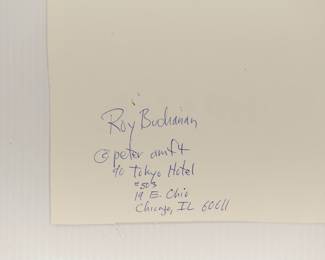 Roy Buchanan
© peter amft
% Tokyo Hotel
#503
19 E. Ohio
Chicago, IL 60611